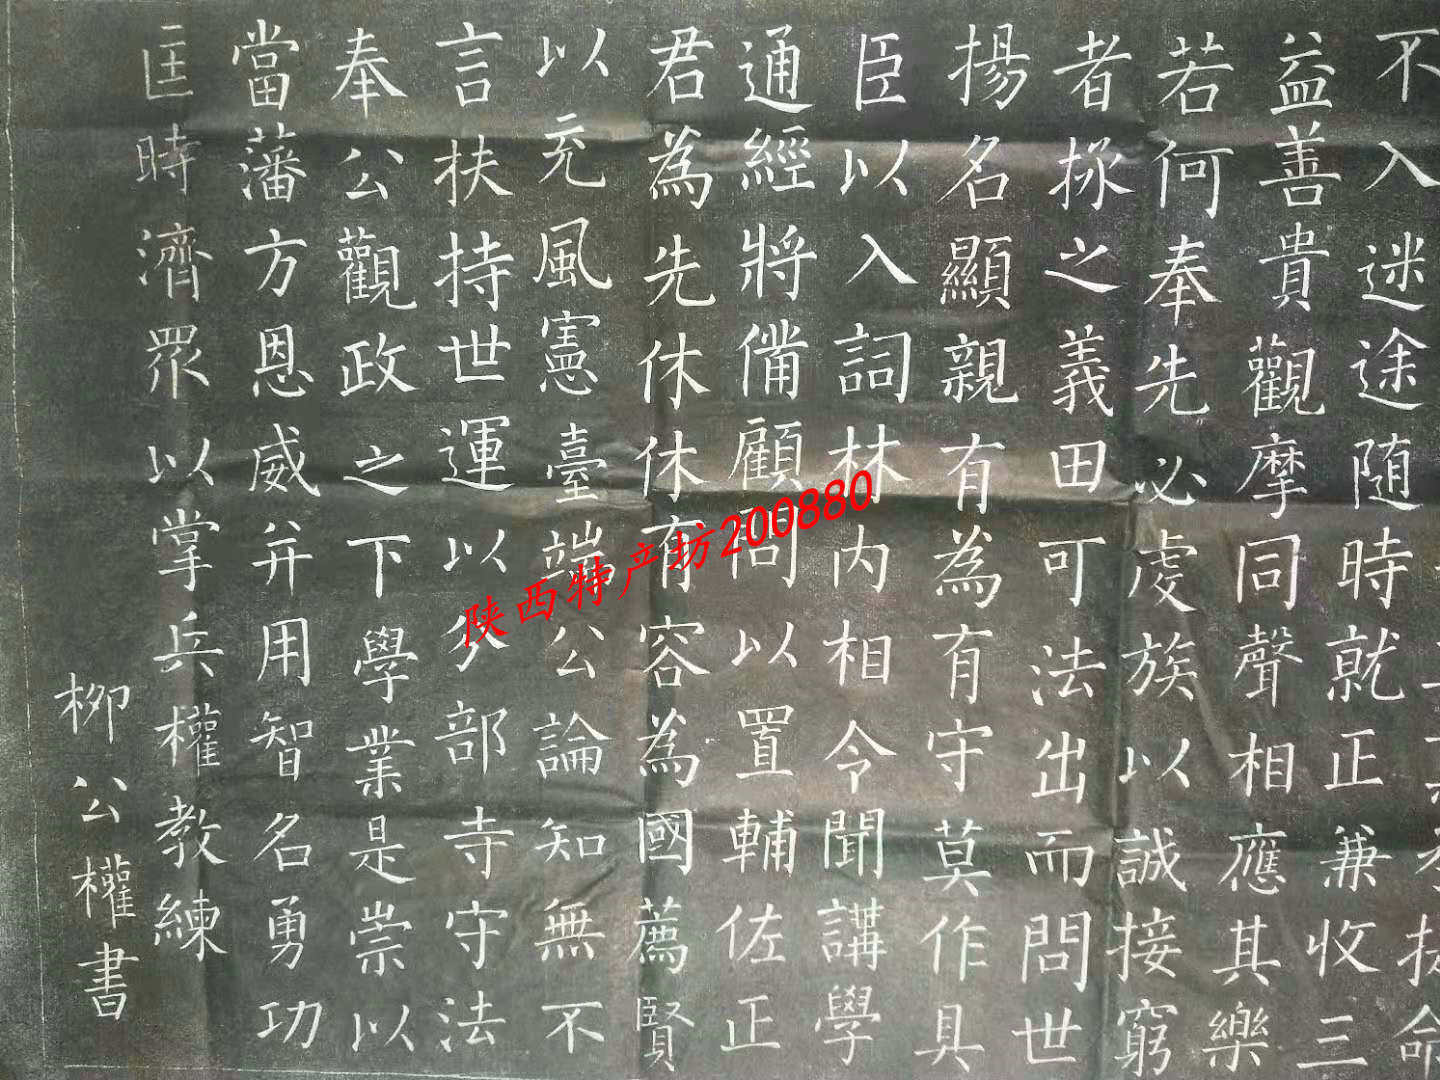 不入迷途随時就正兼收三
益善貴觀摩同聲相應其樂
若何奉先必虔族以誠接窮
者拯之義田可法出而問世
揚名顯親有為有守莫作具
臣以入詞林内相令聞講學
通經將備顧問以置輔佐正
君為先休休有容為國薦賢
以充風憲臺端公論知無不
言扶持世運以分部寺守法
奉公觀政之下學業是崇以
當藩方恩威并用智名勇功
匡時濟眾以掌兵權教練
柳公權書
陕西特产坊200880